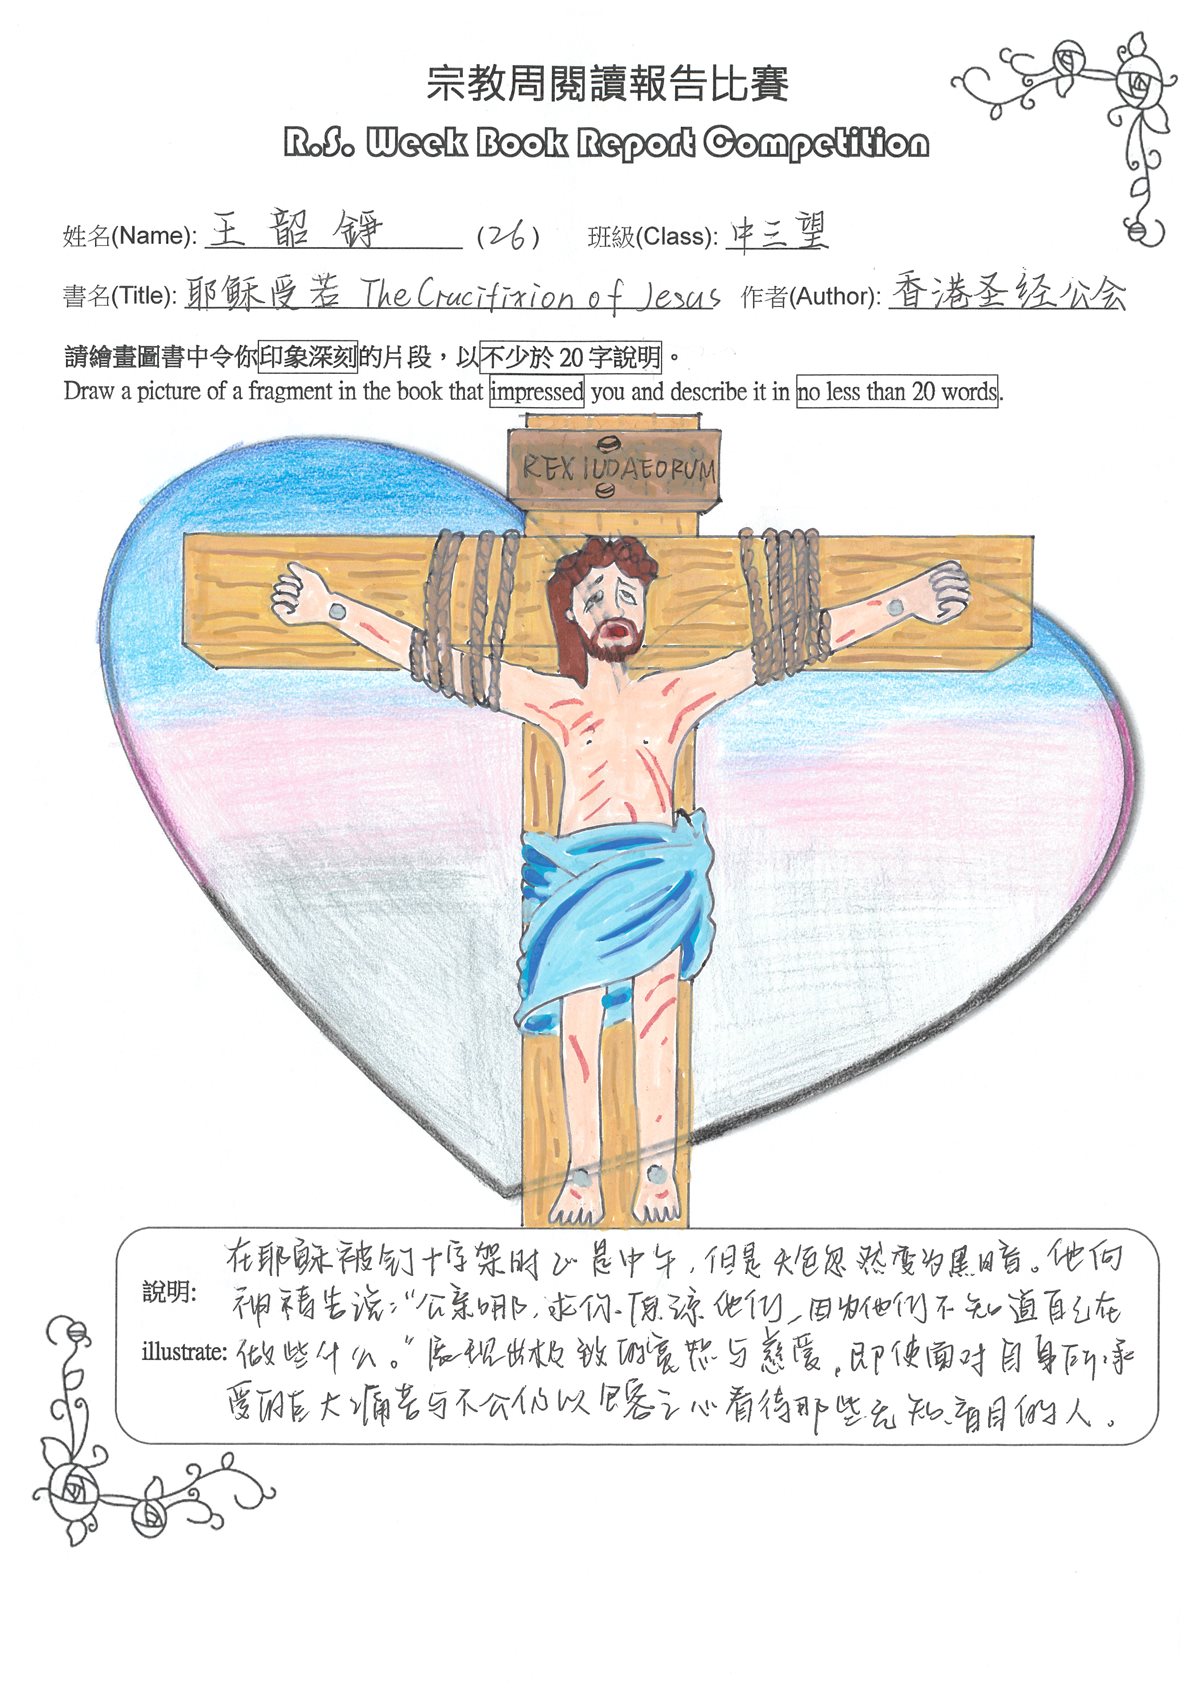 宗教周閱讀報告比賽
R.S. Week Book Report Competition
姓名(Name): 王韶錚 (26) 班級(Class): 中三望
書名(Title): 耶穌受苦 The Crucifixion of Jesus 作者(Author): 香港圣经公会
請繪畫圖書中令你印象深刻的片段，以不少於 20 字說明。
Draw a picture of a fragment in the book that impressed you and describe it in no less than 20 words.
REX IUDAEORUM
說明:
illustrate:
在耶稣被钉十字架时正是中午，但是天色忽然变为黑暗。他向
神祷告说："父亲啊，求你原谅他们，因为他们不知道自己在
做些什么。"展现出极致的宽恕与慈爱，即使面对自身所承
受的巨大痛苦与不公仍以包容之心看待那些无知、盲目的人。